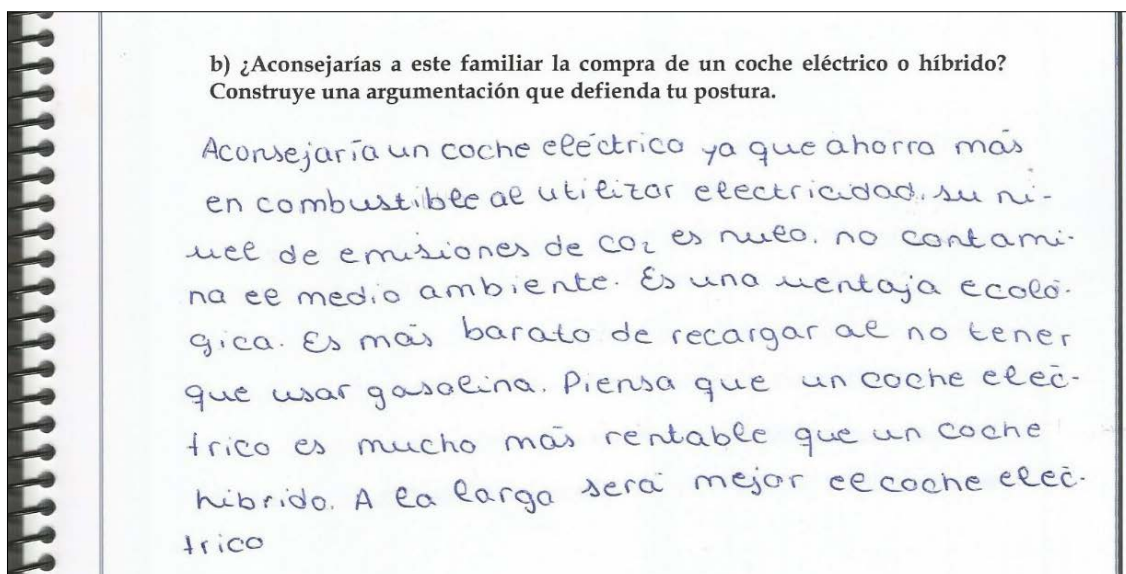 b) ¿Aconsejarías a este familiar la compra de un coche eléctrico o híbrido?
Construye una argumentación que defienda tu postura.
Aconsejaría un coche eléctrico ya que ahorra más
en combustible al utilizar electricidad. su ni-
vel de emisiones de CO₂ es nulo. no contami-
na el medio ambiente. Es una ventaja ecoló-
gica. Es más barato de recargar al no tener
que usar gasolina. Piensa que un coche eléc-
trico es mucho más rentable que un coche
hibrido. A la larga será mejor el coche eléc-
trico